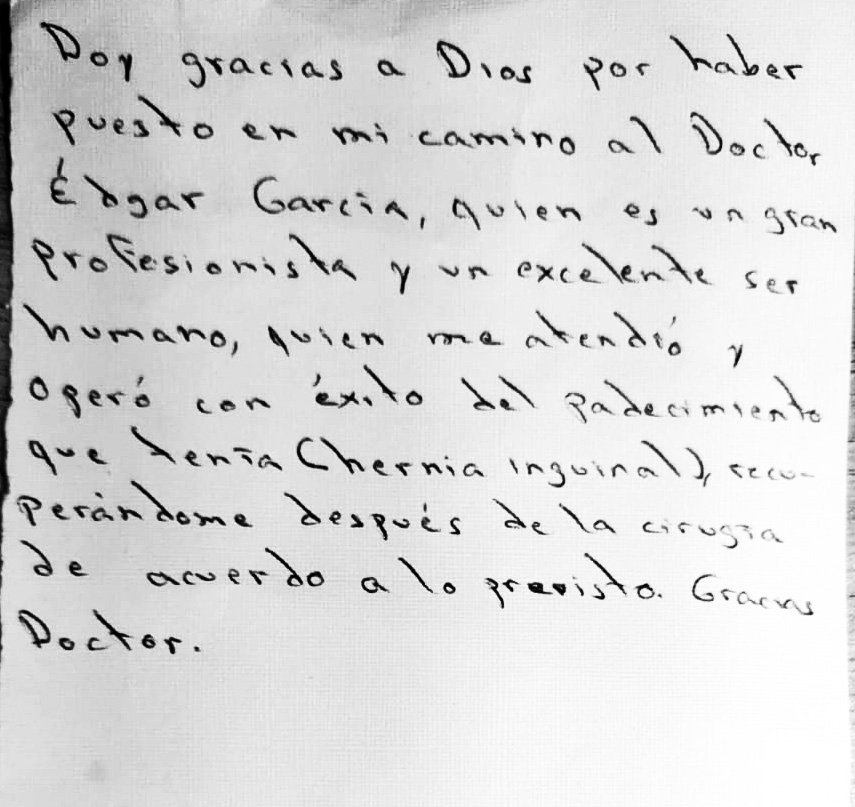 Doy gracias a Dios por haber
puesto en mi camino al Doctor
Édgar García, quien es un gran
profesionista y un excelente ser
humano, quien me atendió y
operó con éxito del padecimiento
que tenía (hernia inguinal), recu-
perándome después de la cirugía
de acuerdo a lo previsto. Gracias
Doctor.